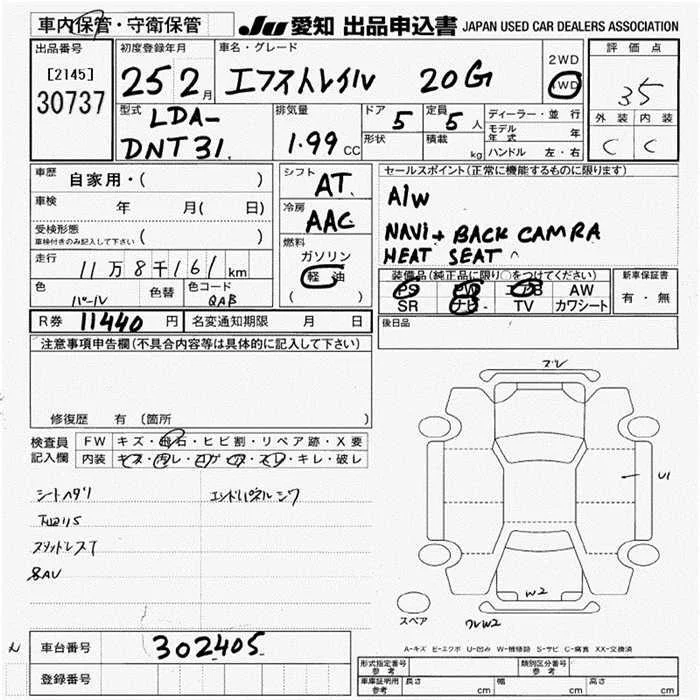 車内保管・守衛保管 JU 愛知 出品申込書 JAPAN USED CAR DEALERS ASSOCIATION
出品番号 初度登録年月 車名・グレード 2WD 評価点
[2145] 25 2月 エクストレイル 20G 4WD 35
30737
型式 排気量 ドア 定員 ディーラー・並行 外装 内装
LDA- 5 5人 モデル年式 年 C C
DNT31. 1.99 CC 形状 積載 kg ハンドル 左・右
車歴 自家用・( ) シフト AT. セールスポイント(正常に機能するものに限ります)
車検 年 月( 日) 冷房 AAC A/W
受検形態 ( ) NAVI + BACK CAMRA
車検付きのみ記入して下さい 燃料 HEAT SEAT
走行 11万8千161km ガソリン 装備品(純正品に限り○をつけてください) 新車保証書
軽油 PS PW AB AW 有・無
色 パール 色替 色コード QAB ( ) SR ナビ TV カワシート
R券 11440円 名変通知期限 月 日 後日品
注意事項申告欄(不具合内容等は具体的に記入して下さい)
修復歴 有 (箇所 )
検査員 FW キズ・飛石・ヒビ割・リペア跡・X要
記入欄 内装 キズ・汚レ・コゲ・穴・スレ・キレ・破レ
シートヘタリ エンドパネルシワ
スタッドレスT
8AV
ブレ
U1
W2
スペア クルW2
A-キズ E-エクボ U-凹み W-補修跡 S-サビ C-腐食 XX-交換済
車台番号 302405
登録番号
形式指定番号 参考 類別区分番号 参考
車庫証明用 参考 長さ cm 幅 cm 高さ cm